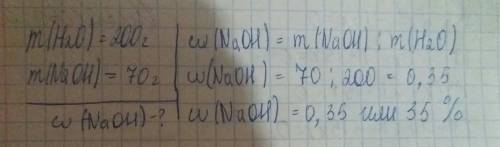 m(H2O) = 200г
m(NaOH) = 70г
w(NaOH) - ?
w(NaOH) = m(NaOH) : m(H2O)
w(NaOH) = 70 : 200 = 0,35
w(NaOH) = 0,35 или 35 %